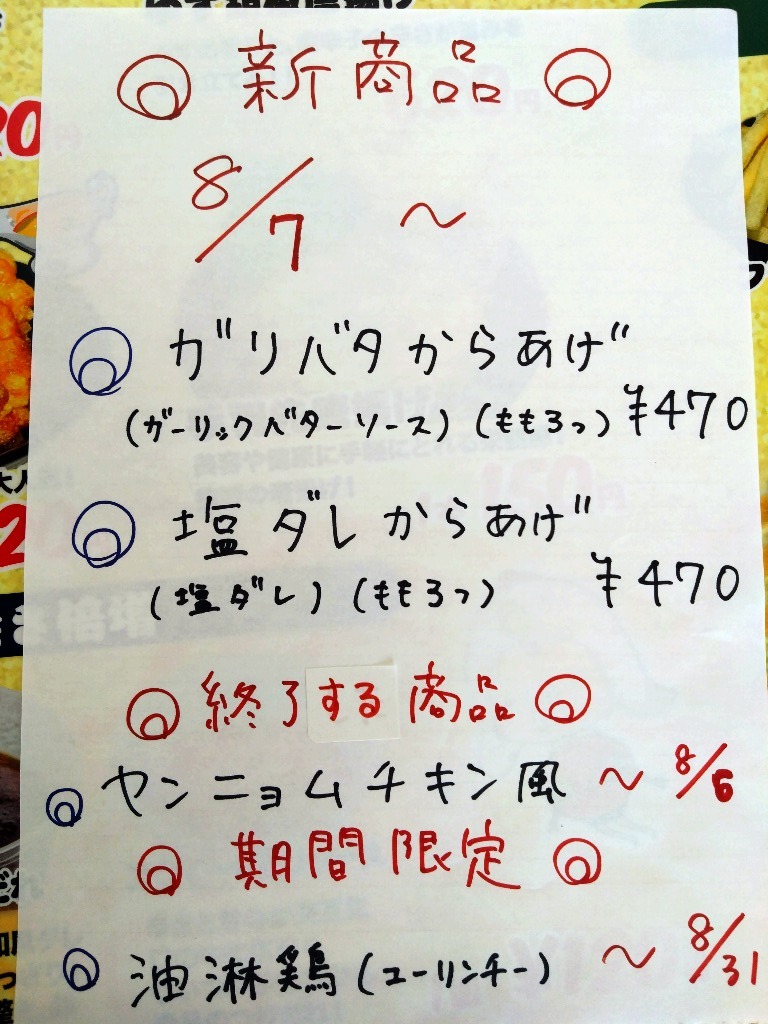 新商品
8/7 ~
ガリバタからあげ
(ガーリックバターソース)(ももろっ) ¥470
塩ダレからあげ
(塩ダレ)(ももろっ) ¥470
終了する商品
ヤンニョムチキン風 ~ 8/6
期間限定
油淋鶏(ユーリンチー) ~ 8/31